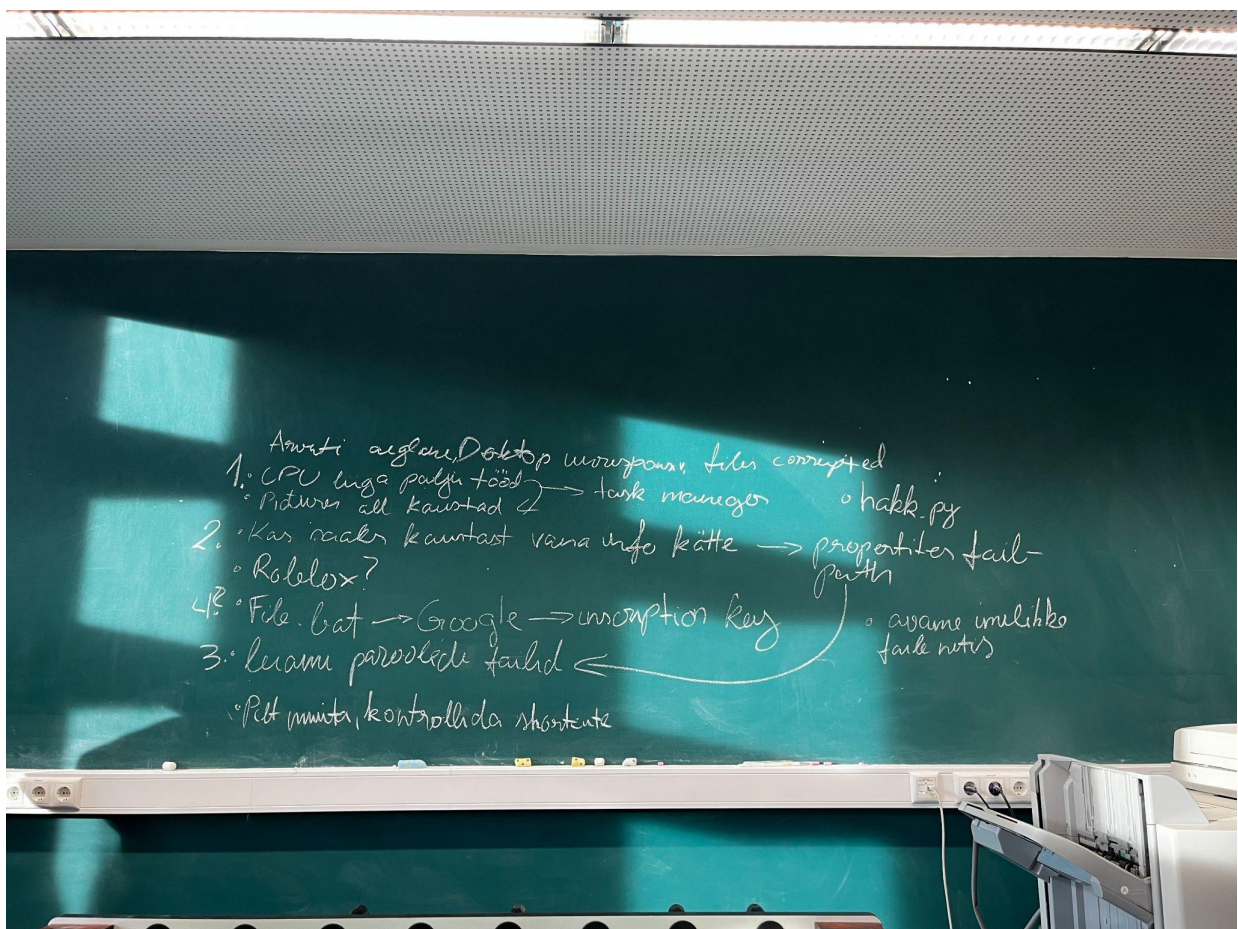 Arvuti aeglane, Desktop unresponsiv, files corrupted
1. ◦ CPU liiga palju tööd → task maneger
◦ Pictures all kaustad
◦ hakk.py
2. ◦ Kas saaks kaustast vana info kätte → propertites fail-
path
◦ Roblox?
4? ◦ File.bat → Google → inscription key
◦ avame imelikke
faile notis
3. ◦ leiame paroolide failid
◦ Pilt muuta, kontrollida shortcute